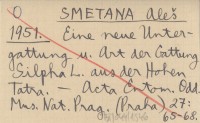 O SMETANA Aleš
1951. Eine neue Unter-
gattung u. Art der Gattung
Silpha L. aus der Hohen
Tatra. — Acta Entom. Odd.
Mus. Nat. Prag. (Praha) 27:
65-68.